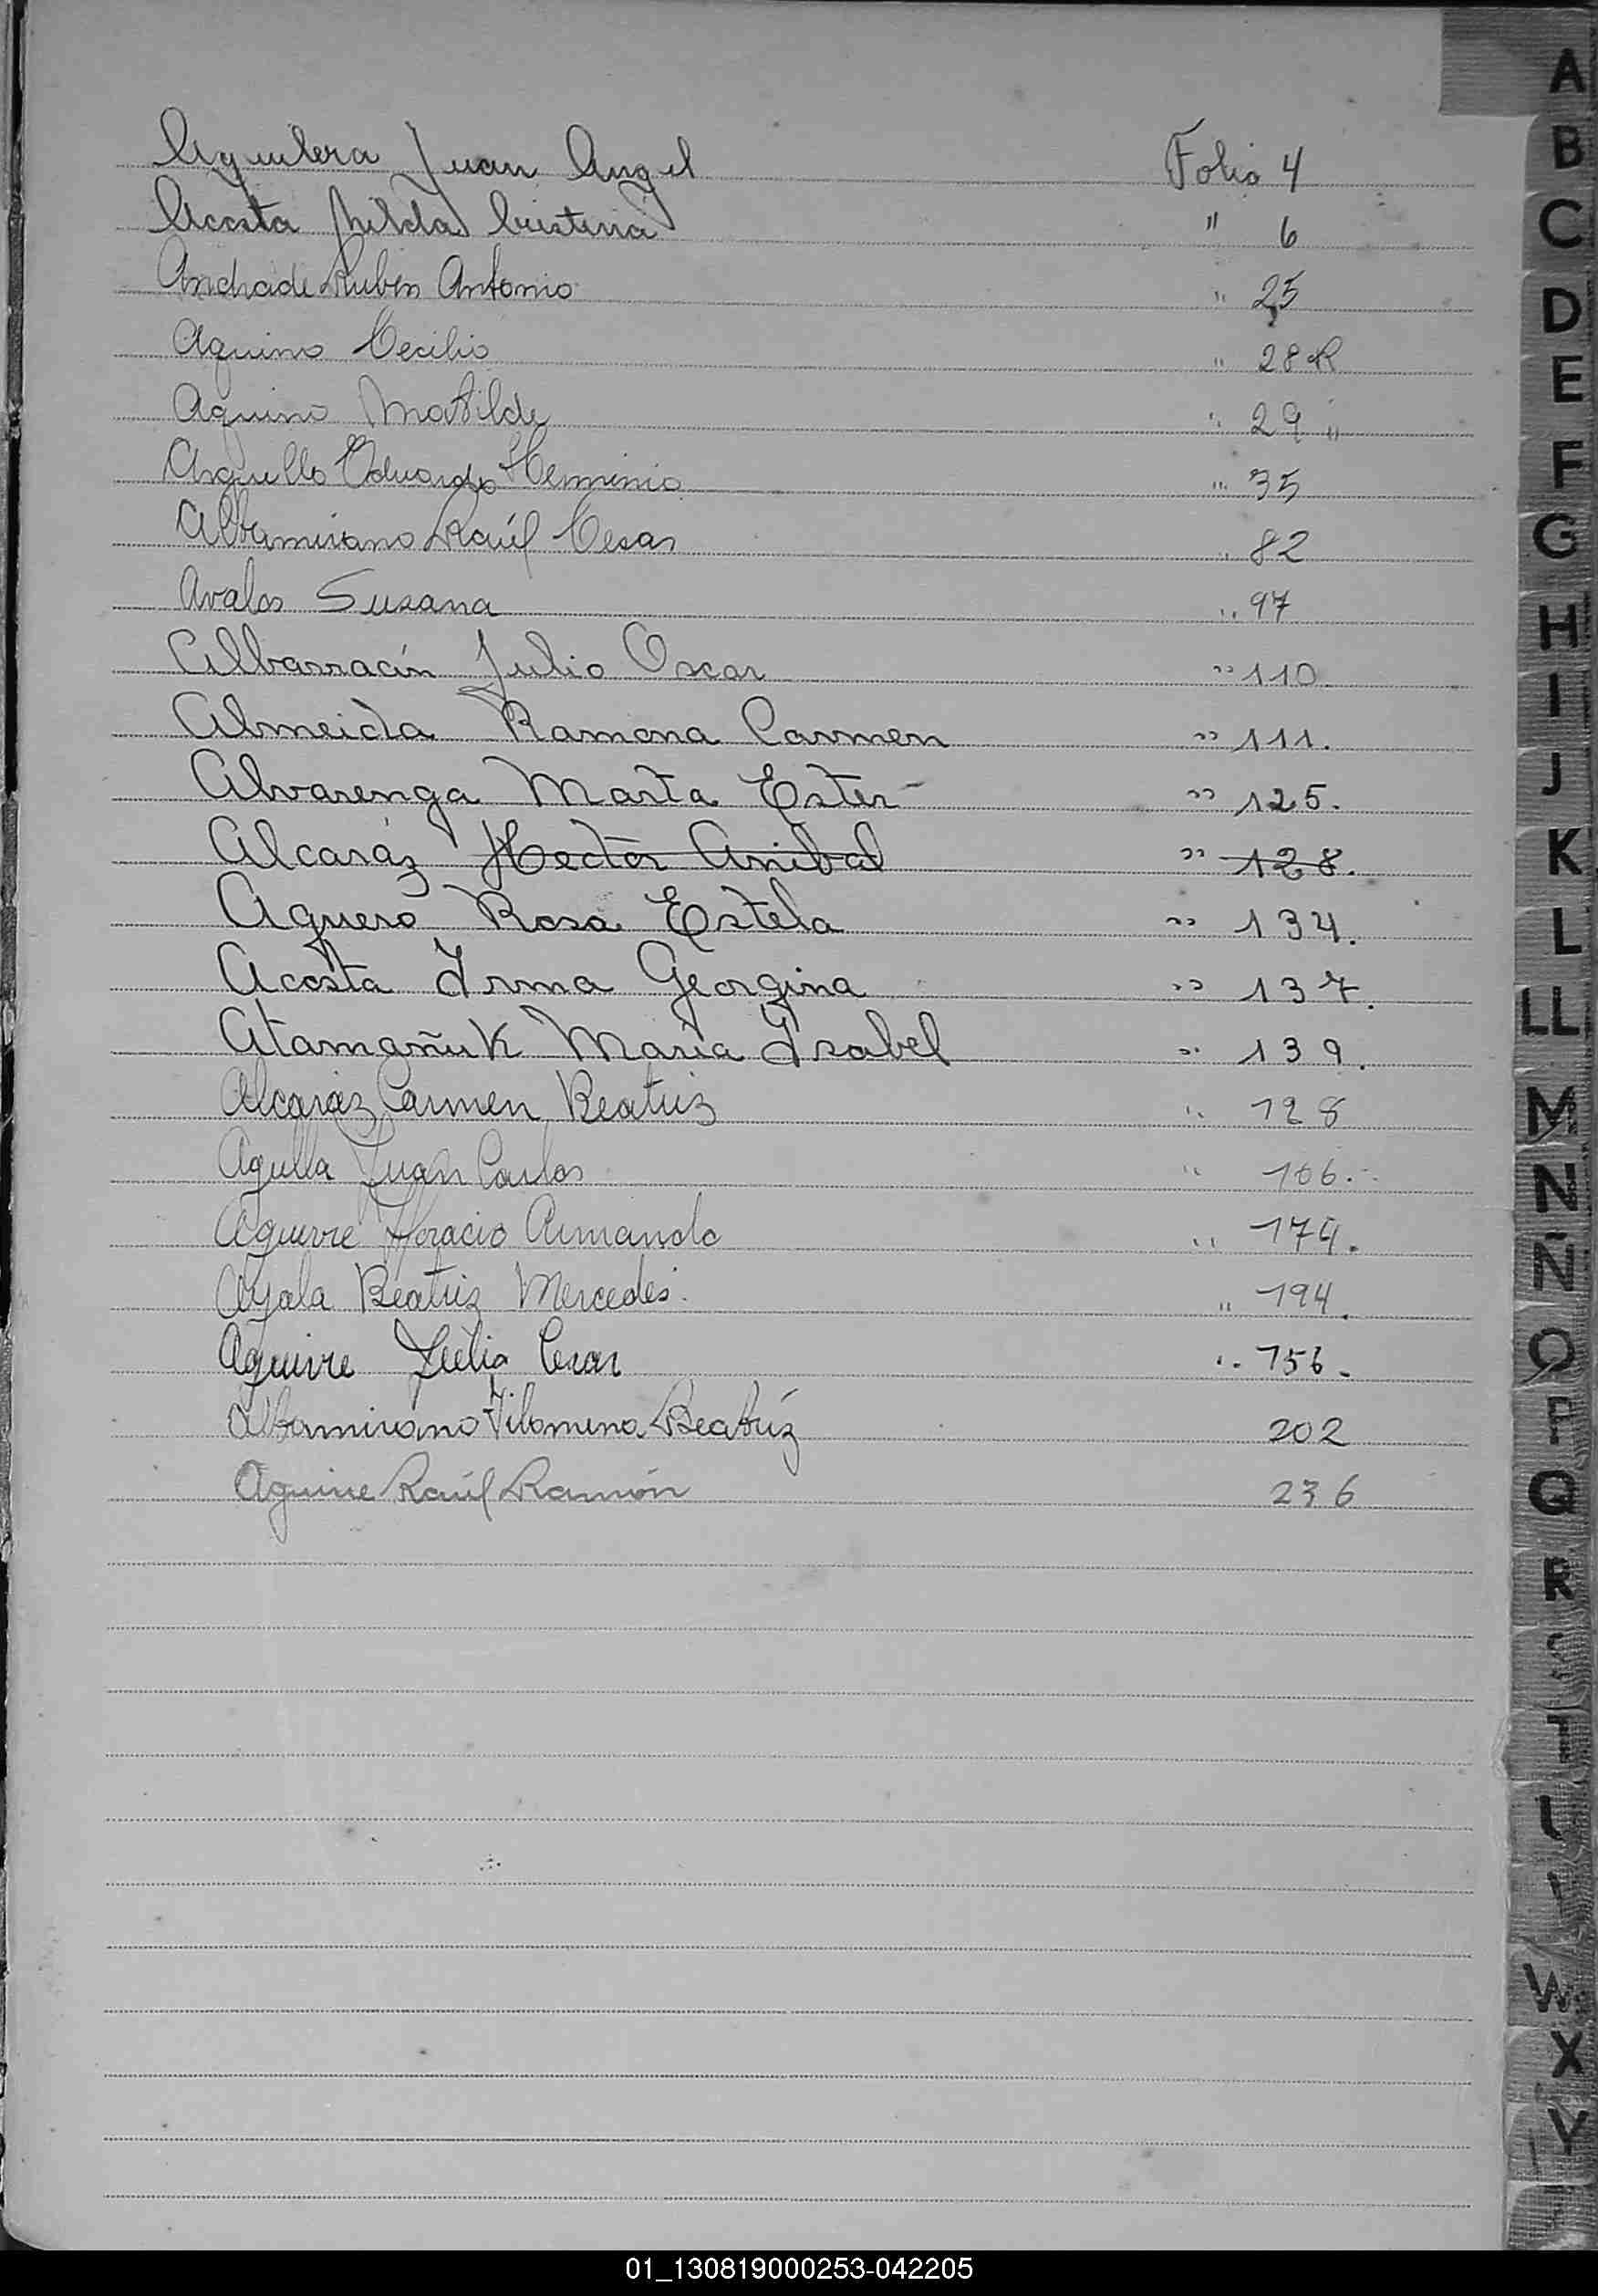 Aguilera Juan Angel Folio 4
Acosta hilda Cristina " 6
Andrade Rubén Antonio " 25
Aquino Cecilio " 28 R
Aquino Matilde " 29 "
Arguello Eduardo Herminio " 35
Altamirano Raúl Cesar " 82
Avalos Susana " 97
Albarracín Julio Oscar " 110.
Almeida Ramona Carmen " 111.
Alvarenga Marta Ester " 125.
Alcaráz Hector Anibal " 128.
Aguero Rosa Estela " 134.
Acosta Irma Georgina " 137.
Atamañuk Maria Isabel " 139.
Alcaráz Carmen Beatriz " 128
Agulla Juan Carlos " 166.-
Aguirre Horacio Armando " 174.
Ayala Beatriz Mercedes. " 194.
Aguirre Julio Cesar " 156-
Altamirano Filomena Beatríz 202
Aguirre Raúl Ramón 236
A
B
C
D
E
F
G
H
I
J
K
L
LL
M
N
Ñ
O
P
Q
R
W
X
Y
01_130819000253-042205